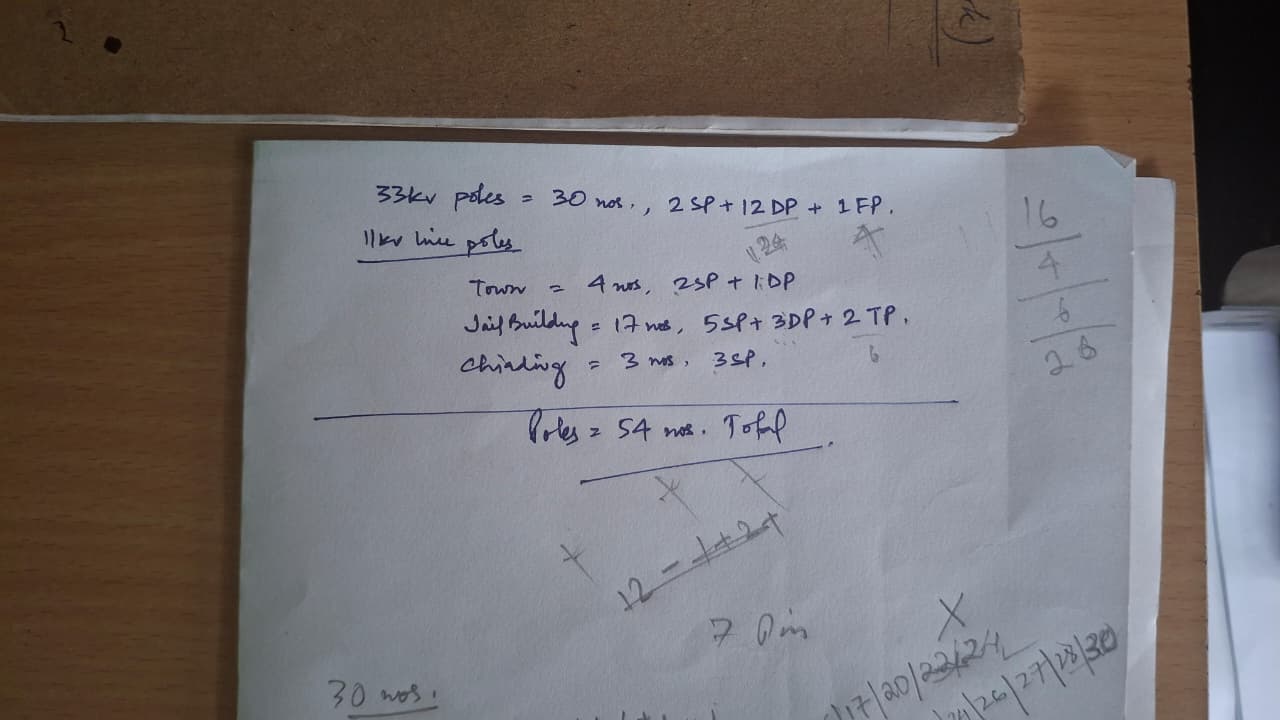 2
33kv poles = 30 nos., 2 SP + 12 DP + 1 FP.
24 4
11kv line poles
Town = 4 nos, 2SP + 1 DP
Jail Building = 17 nos, 5SP + 3DP + 2 TP.
6
Chiading = 3 nos, 3SP.
Poles = 54 nos. Total
16
4
6
26
12 - 1+2+
7 Pin
X
17/20/23/24
26/27/28/30
30 nos.